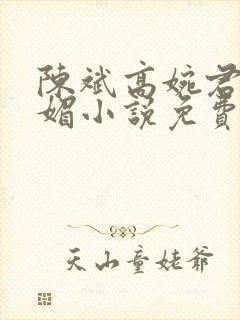 陳斌高婉君
媚小說免費
天山童姥爺